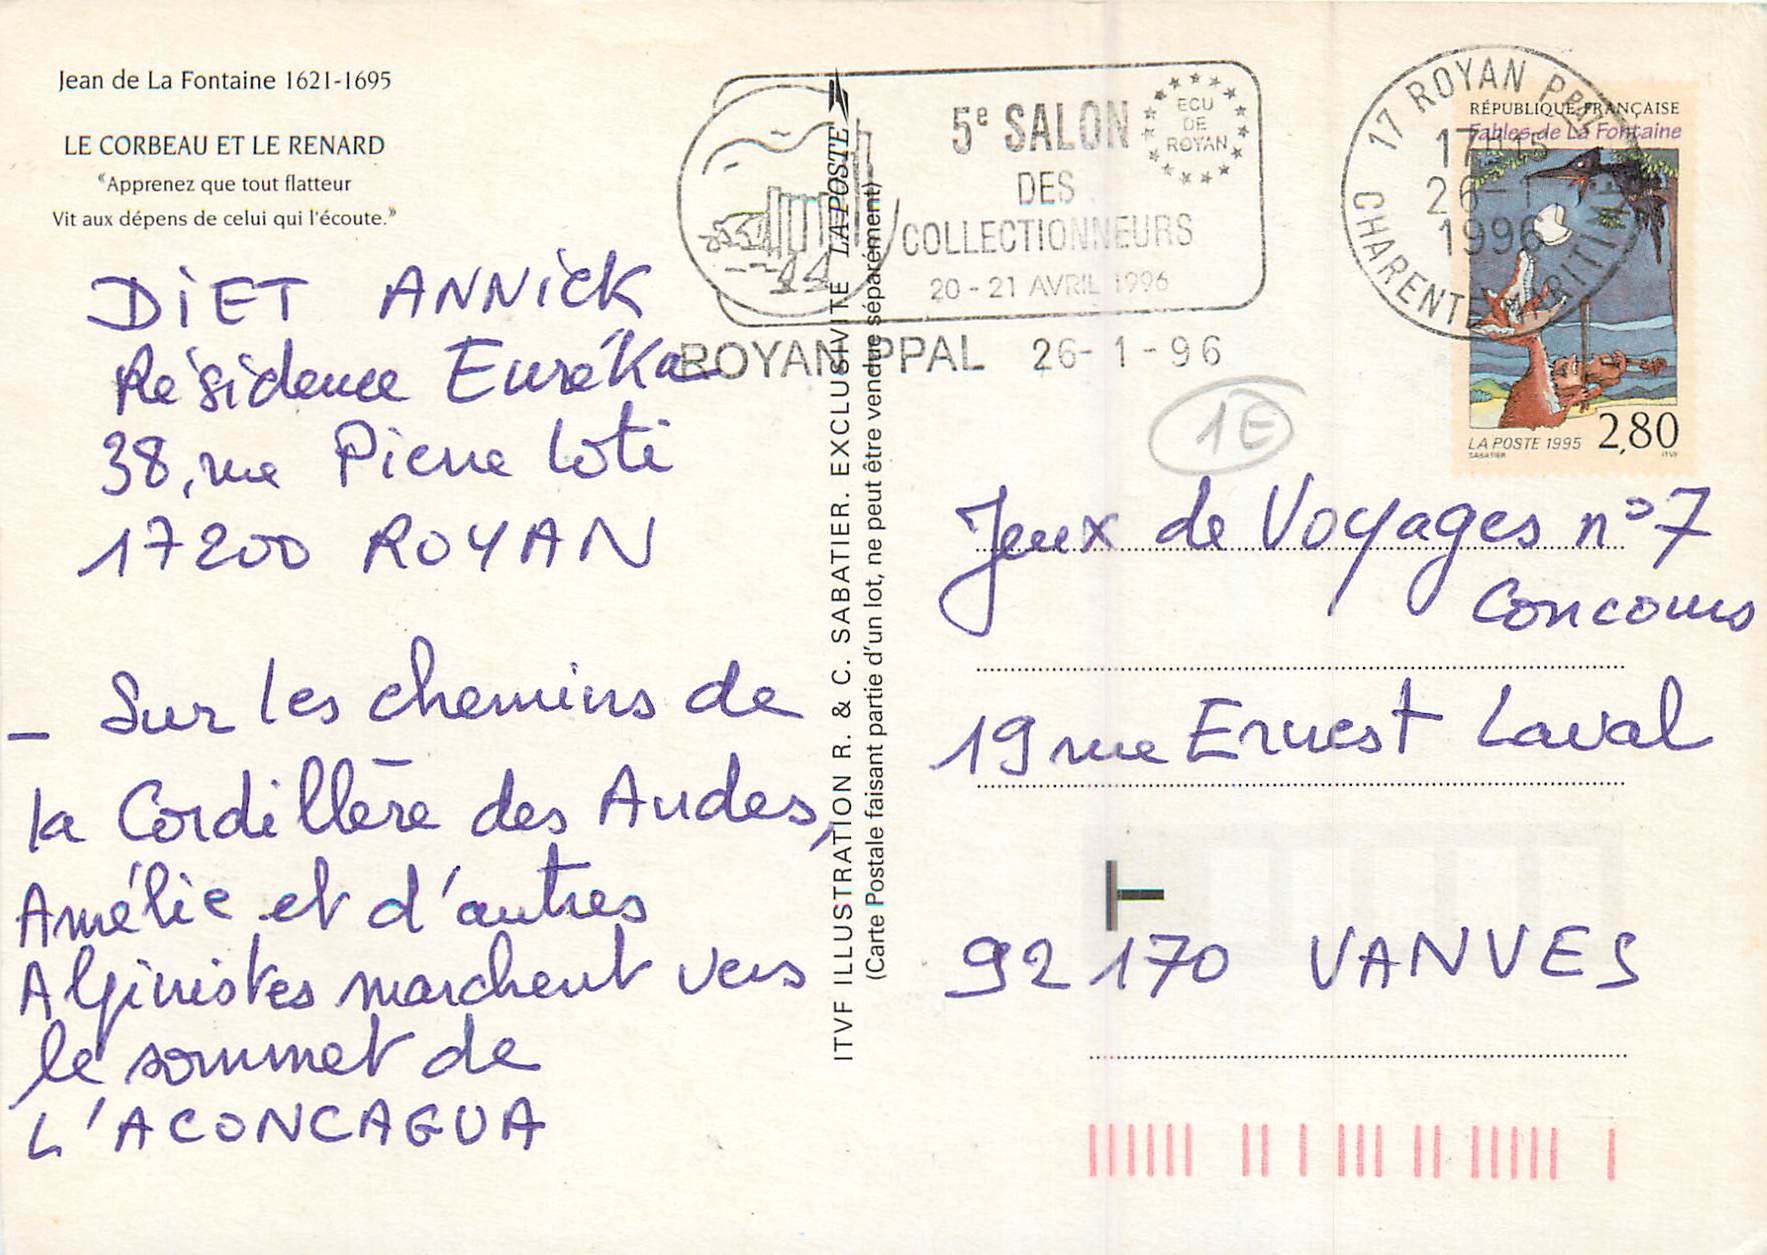 Jean de La Fontaine 1621-1695
LE CORBEAU ET LE RENARD
“Apprenez que tout flatteur
Vit aux dépens de celui qui l'écoute.”
DIET ANNICK
Résidence Euréka
38, rue Pierre Loti
17200 ROYAN
_ Sur les chemins de
la Cordillère des Andes,
Amélie et d'autres
Alpinistes marchent vers
le sommet de
L'ACONCAGUA
ITVF ILLUSTRATION R. & C. SABATIER. EXCLUSIVITE LA POSTE
(Carte Postale faisant partie d'un lot, ne peut être vendue séparément)
5e SALON
DES
COLLECTIONNEURS
20-21 AVRIL 1996
ECU
DE
ROYAN
ROYAN PPAL 26-1-96
17 ROYAN PPAL
17H15
26-1
1996
CHARENTE MARITIME
RÉPUBLIQUE FRANÇAISE
Fables de La Fontaine
LA POSTE 1995 2,80
SABATIER ITVF
1E
Jeux de Voyages n°7
Concours
19 rue Ernest Laval
T
92170 VANVES